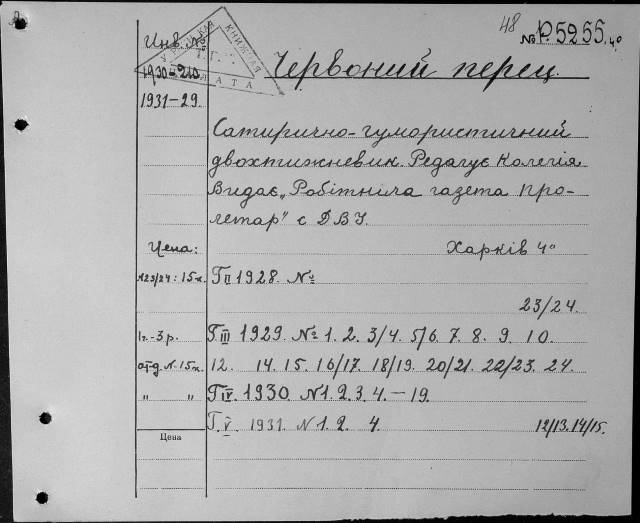 48
№ Р5255. 4°
Инв. №
УКРАЇНСКАЯ КНИЖНАЯ ПАЛАТА
1930-210
1931-29.
Червоний перец.
Сатирично-гумористичний
двохтижневик. Редагує Колегія
Видає „Робітнича газета Про-
летар" с ДВУ.
Цена: Харків 4°
№23/24: 15к. Г. II 1928. №
23/24.
1г.-3р. Г. III 1929. № 1. 2. 3/4. 5/6. 7. 8. 9. 10.
отд. N. 15к. 12. 14. 15. 16/17. 18/19. 20/21. 22/23. 24.
„ „ Г. IV. 1930. N 1. 2. 3. 4. – 19.
Г. V. 1931. N 1. 2. 4. 12/13. 14/15.
Цена